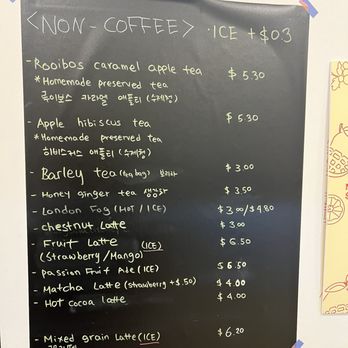 <NON-COFFEE> ·ICE + $0.3
- Rooibos caramel apple tea $5.30
* Homemade preserved tea
루이보스 카라멜 애플티 (수제청)
- Apple hibiscus tea $5.30
* Homemade preserved tea
히비스커스 애플티 (수제청)
- Barley tea (tea bag) 보리차 $3.00
- Honey ginger tea 생강차 $3.50
- London Fog (HOT / ICE) $3.00/$4.80
- chestnut Latte $3.00
- Fruit Latte (ICE) $6.50
(Strawberry/Mango)
- Passion Fruit Ade (ICE) $6.50
- Matcha Latte (strawberry +$.50) $4.00
- Hot cocoa latte $4.00
- Mixed grain Latte (ICE) $6.20